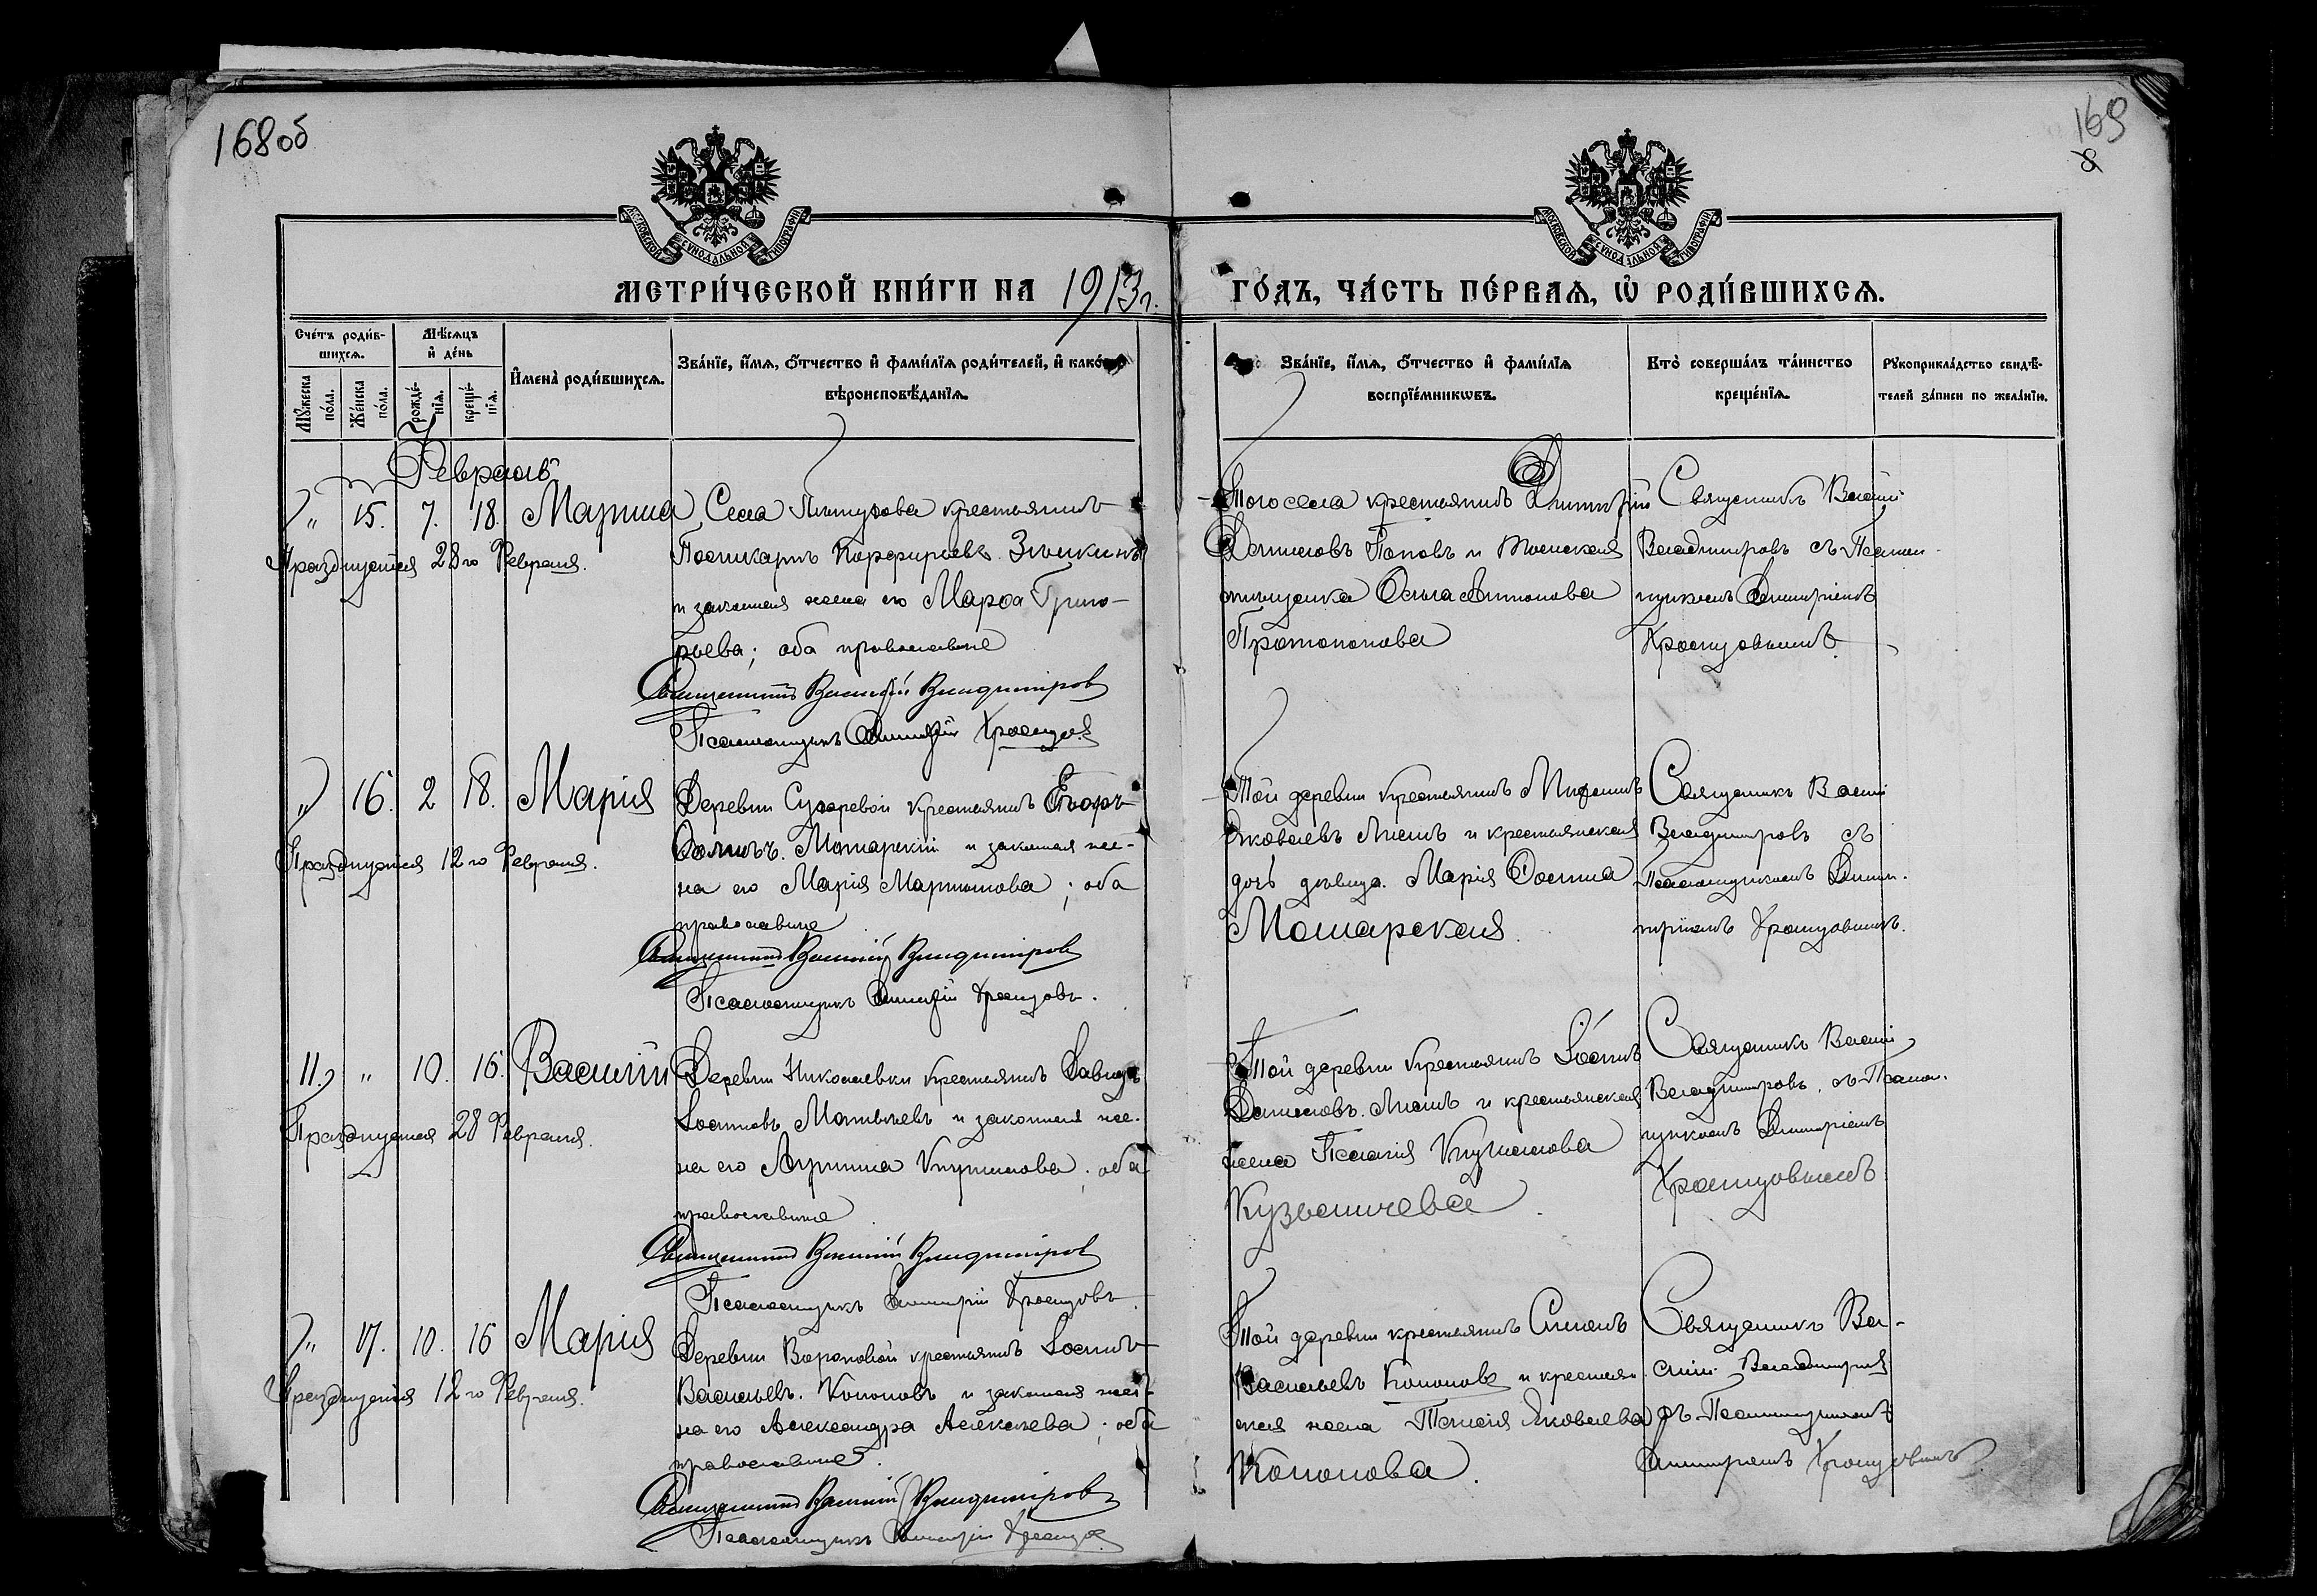 168об
169
8
МОСКОВСКОЙ СѴНОДАЛЬНОЙ ТИПОГРАФІИ
МОСКОВСКОЙ СѴНОДАЛЬНОЙ ТИПОГРАФІИ
МЕТРИ́ЧЕСКОЙ КНИ́ГИ НА 1913 г.
ГО́ДЪ, ЧА́СТЬ ПЕ́РВАѦ, Ѡ҆ РОДИ́ВШИХСѦ.
Сче́тъ роди́в-
шихсѧ.
Мꙋ́жеска
по́ла.
Же́нска
по́ла.
Мѣ́сѧцъ
и҆ де́нь
рожде́-
нїѧ.
креще́-
нїѧ.
И҆мена̀ роди́вшихсѧ.
Зва́нїе, и҆́мѧ, ѻ҆́тчество и҆ фами́лїѧ роди́телей, и҆ како́гѡ
вѣроисповѣ́данїѧ.
Зва́нїе, и҆́мѧ, ѻ҆́тчество и҆ фами́лїѧ
воспрїе́мникѡвъ.
Кто̀ соверша́лъ та́инство
креще́нїѧ.
Рꙋкоприкла́дство свидѣ́-
телей за́писи по жела́нїю.
Февраль
" 15. 7. 18. Марина
Празднуется 28го Февраля.
Села крестьянинъ
Порфирьевъ
и законная жена его Марѳа Григо-
рьева; оба православные
Священникъ Василій Владиміров
Псаломщикъ Димитрій Храмцов
Того села крестьянинъ Димитрій
Даниловъ Поповъ и Томская
мѣщанка Ольга Антонова
Протопопова
Священникъ Василій
Владиміровъ съ Псалом-
щикомъ Димитріемъ
Храмцовымъ
" 16. 2 18. Марія
Празднуется 12го Февраля.
Деревни Сухаревой крестьянинъ Егоръ
Мошарскій и законная же-
на его Марія Мартынова; оба
православные
Священникъ Василій Владиміров
Псаломщикъ Димитрій Храмцовъ.
Той деревни крестьянинъ
Яковлевъ и крестьянская
дочь дѣвица Марія
Мошарская.
Священникъ Василій
Владиміровъ съ
Псаломщикомъ Дими-
тріемъ Храмцовымъ.
11. " 10. 16. Василій
Празднуется 28 Февраля.
Деревни Николаевки крестьянинъ Давидъ
Матвѣевъ и законная же-
на его оба
православные
Священникъ Василій Владиміров
Псаломщикъ Димитрій Храмцовъ
Той деревни крестьянинъ
Даниловъ и крестьянская
жена Пелагія
Кузьмичева.
Священникъ Василій
Владиміровъ съ Псалом-
щикомъ Димитріемъ
Храмцовымъ
" 17. 10. 16 Марія
Празднуется 12го Февраля.
Деревни Вороновой крестьянинъ
Васильевъ Кононовъ и законная же-
на его Александра Алексѣева; оба
православные.
Священникъ Василій Владиміров
Псаломщикъ Димитрій Храмцов
Той деревни крестьянинъ
Васильевъ Кононовъ и крестьян-
ская жена Яковлева
Кононова.
Священникъ Ва-
силій Владиміров
съ Псаломщикомъ
Димитріемъ Храмцовымъ